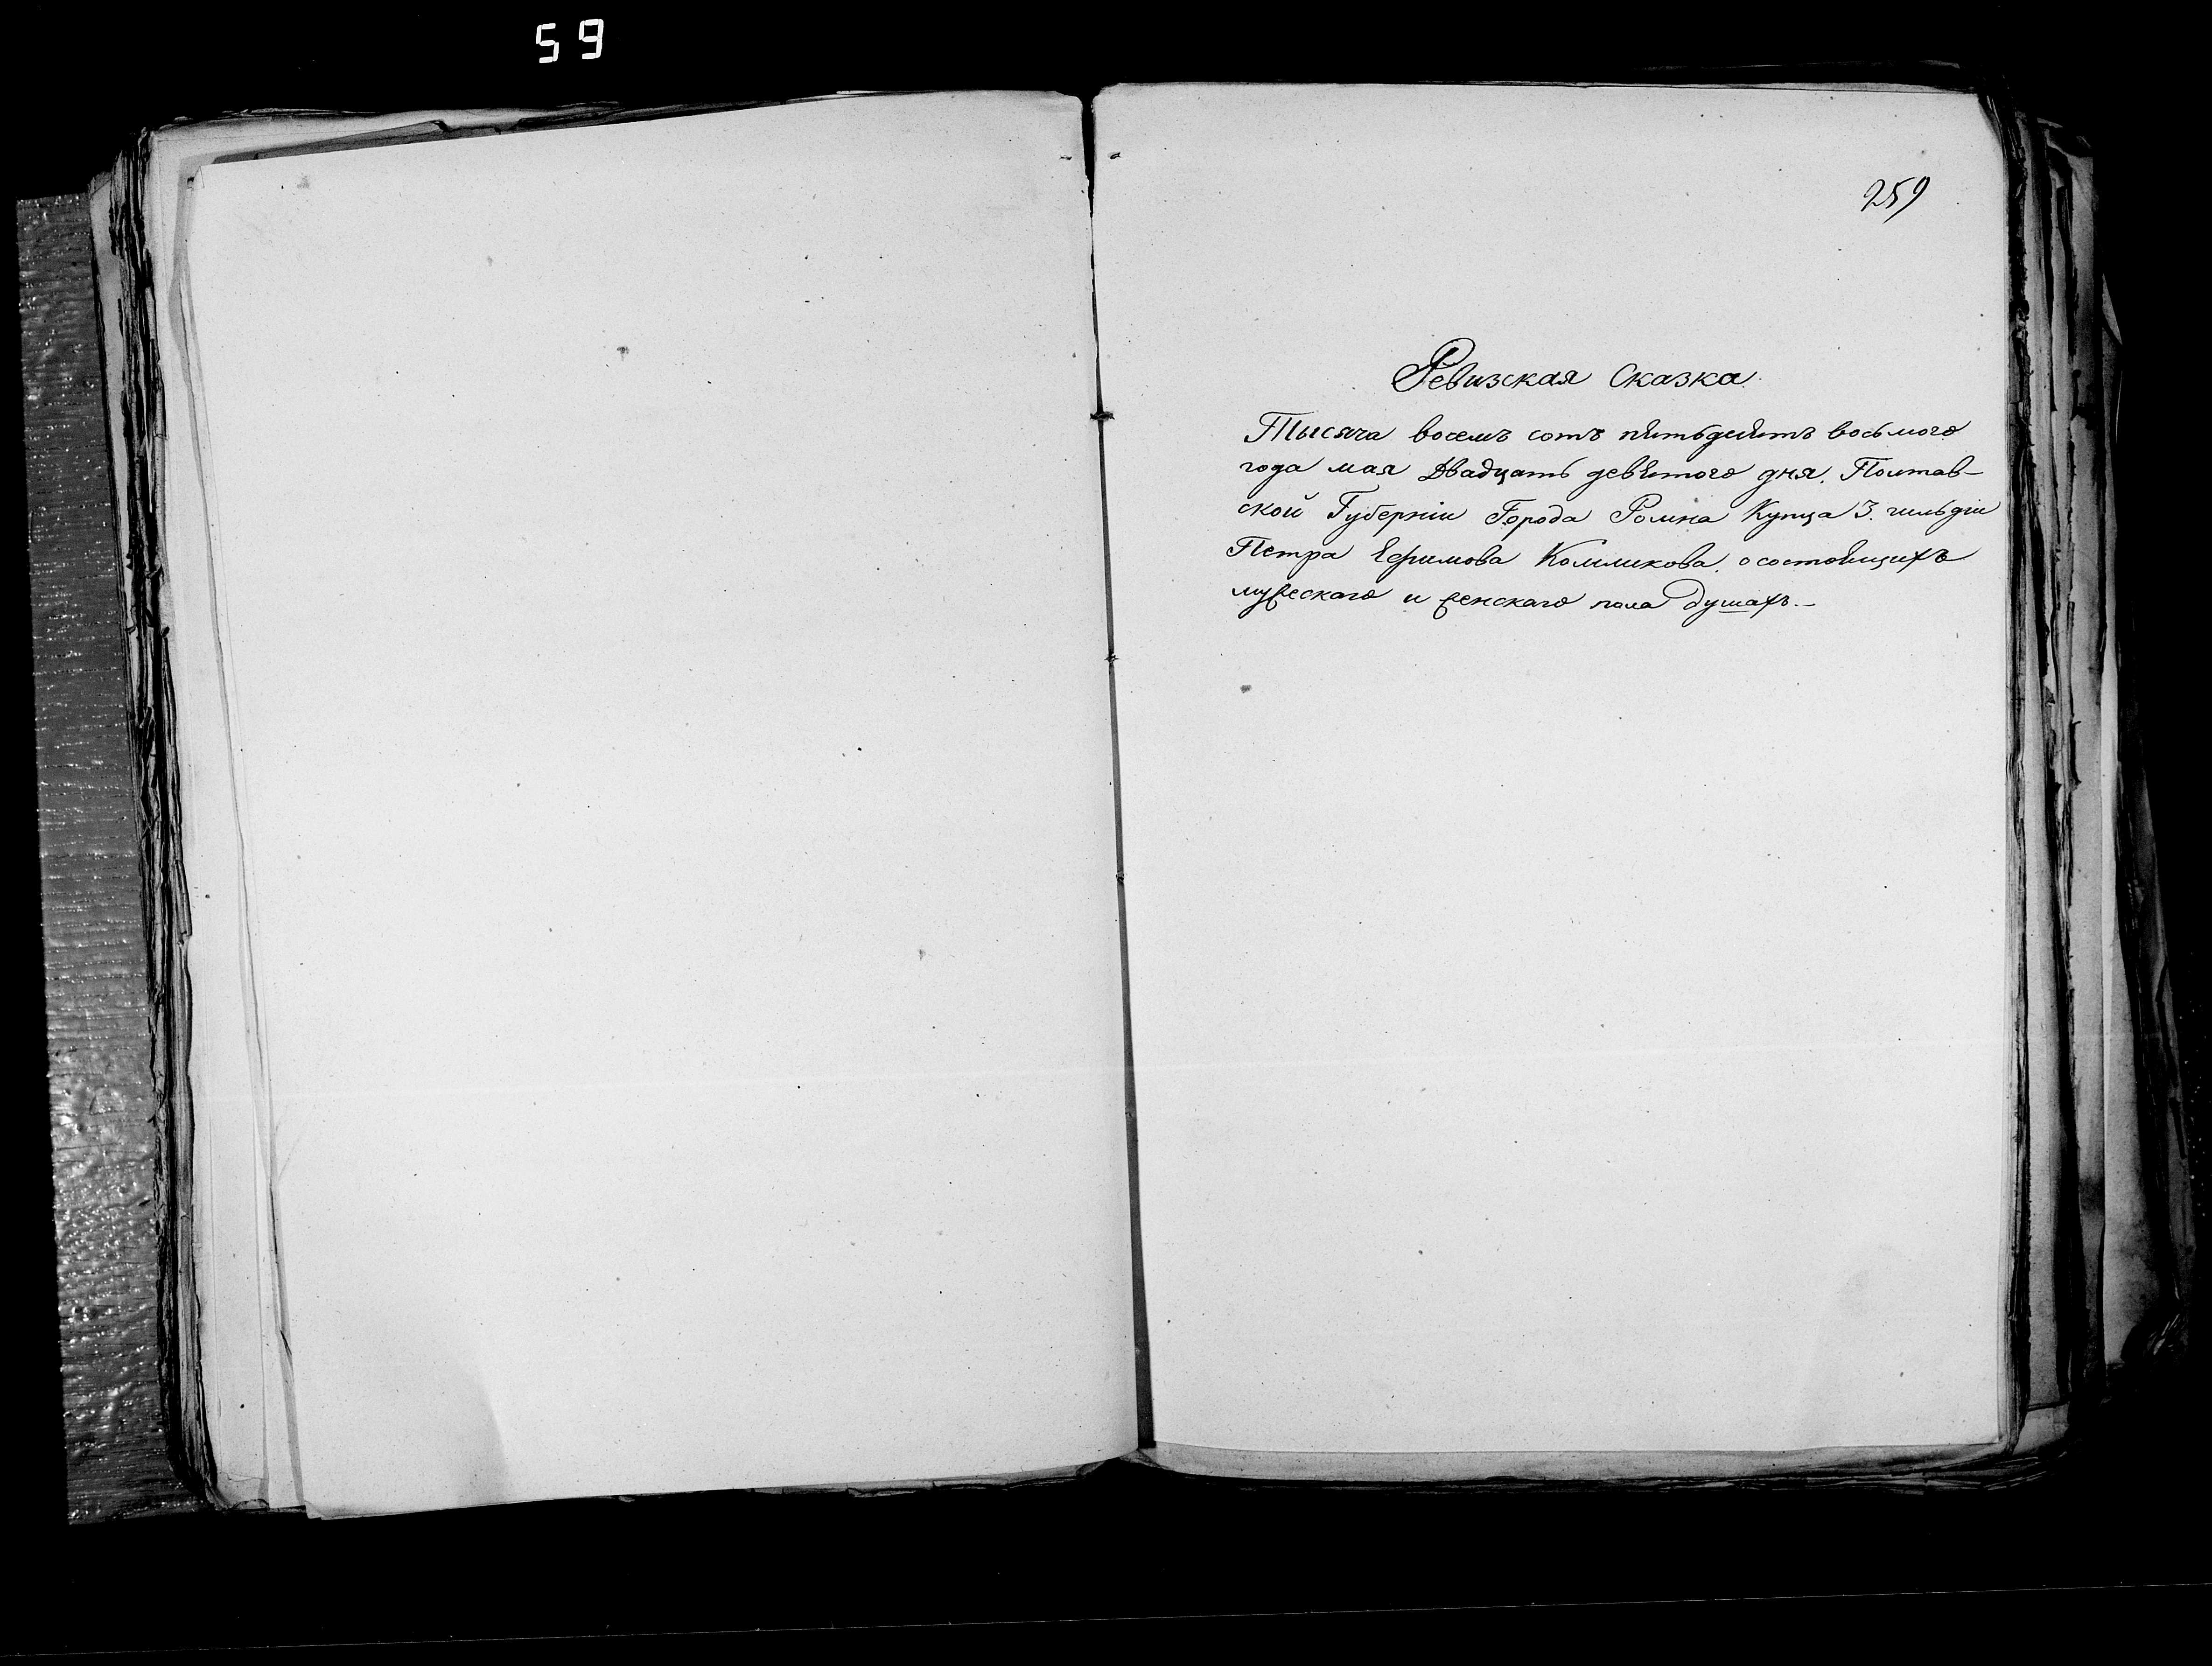 59
259
Ревизская Сказка.
Тысяча восемъ сотъ пятьдесятъ восьмого
года мая Двадцать девятого дня. Полтав-
ской Губерніи Города Ромна Купца 3. гильдіи
Петра Ефимова о состоящихъ
мужескаго и женскаго пола душахъ.-